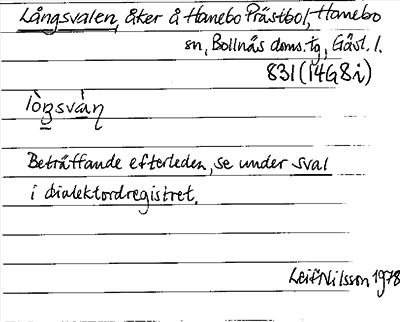 Långsvalen, åker å Hanebo Prästbol, Hanebo
sn, Bollnäs doms.tg, Gävl. l.
831 (14G8i)
lòŋsvàn
Beträffande efterleden, se under sval
i dialektordregistret.
Leif Nilsson 1978